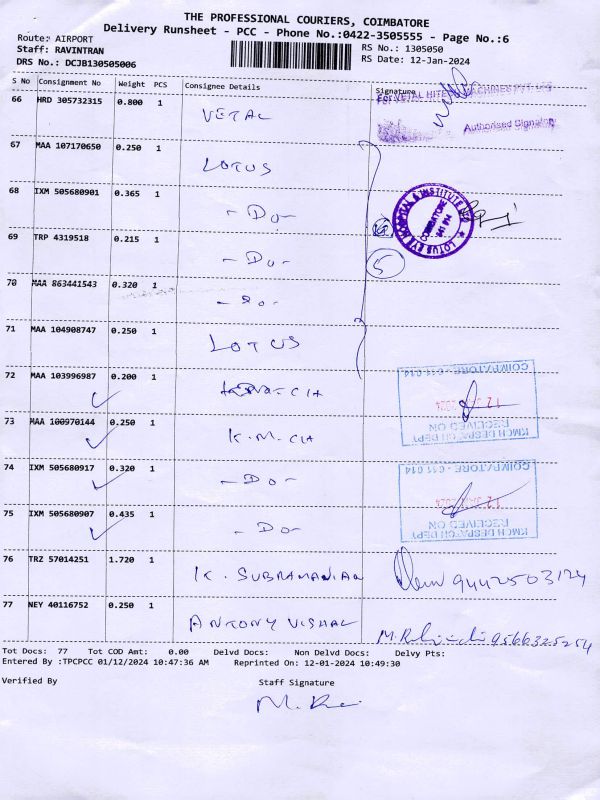 THE PROFESSIONAL COURIERS, COIMBATORE
Delivery Runsheet - PCC - Phone No.:0422-3505555 - Page No.:6
Route: AIRPORT RS No.: 1305050
Staff: RAVINTRAN RS Date: 12-Jan-2024
DRS No.: DCJB130505006
S No Consignment No Weight PCS Consignee Details Signature
For VETAL HITECH MACHINES PVT. LTD.
66 HRD 305732315 0.800 1 VETAL
Authorised Signatory
67 MAA 107170650 0.250 1 LOTUS
68 IXM 505680901 0.365 1 - Do -
LOTUS EYE HOSPITAL & INSTITUTE LTD
COIMBATORE
641 014
69 TRP 4319518 0.215 1 - Do - 5
70 MAA 863441543 0.320 1 - Do -
71 MAA 104908747 0.250 1 LOTUS
72 MAA 103996987 0.200 1
KMCH DESPATCH DEPT
RECEIVED ON
COIMBATORE - 641 014
73 MAA 100970144 0.250 1 K.M.CH
74 IXM 505680917 0.320 1 - Do -
KMCH DESPATCH DEPT
RECEIVED ON
12 JAN 2024
COIMBATORE - 641 014
75 IXM 505680907 0.435 1 - Do -
76 TRZ 57014251 1.720 1 K. SUBRAMANIAN 9442503124
77 NEY 40116752 0.250 1 ANTONY VISHAL 9566325254
Tot Docs: 77 Tot COD Amt: 0.00 Delvd Docs: Non Delvd Docs: Delvy Pts:
Entered By :TPCPCC 01/12/2024 10:47:36 AM Reprinted On: 12-01-2024 10:49:30
Verified By Staff Signature